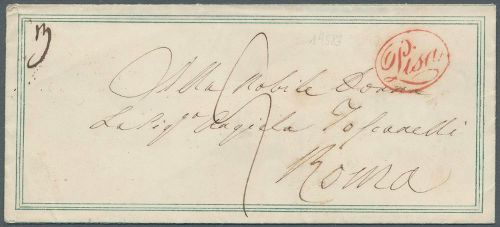 19583
Pisa
Alla Nobile Donna
La Sig.ra Angiola Toscanelli
Roma